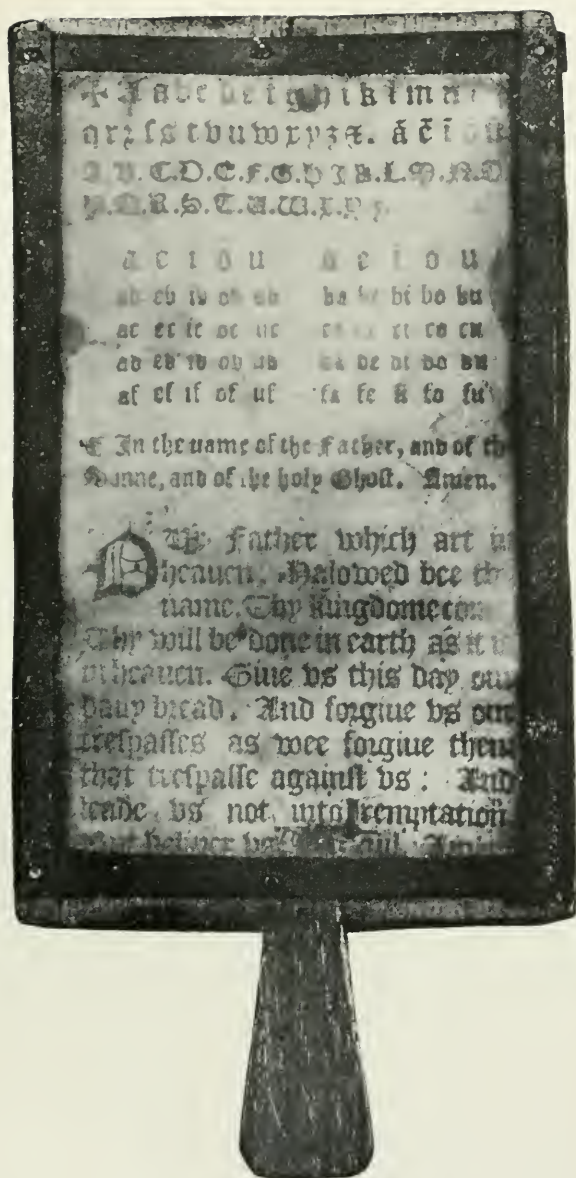 ✠ A a b c d e f g h i k l m n
q r ꝛ ſ s t v u w x y z &. ã ẽ ĩ õ ũ
A. B. C. D. E. F. G. H. I. K. L. M. N. O
P. Q. R. S. T. U. W. X. Y
a e i o u a e i o u
ab eb ib ob ub ba be bi bo bu
ac ec ic oc uc ca ce ci co cu
ad ed id od ud da de di do du
af ef if of uf fa fe fi fo fu
¶ In the name of the Father, and of th
Sonne, and of the holy Ghoſt. Amen.
OUR Father which art in
heauen, Halowed bee th
name. Thy kingdome com
Thy will be done in earth as it i
in heauen. Giue vs this day our
dayly bread. And forgiue vs our
treſpaſſes as wee forgiue them
that treſpaſſe againſt vs: And
leade vs not into temptation
But deliuer vs euill. Amen